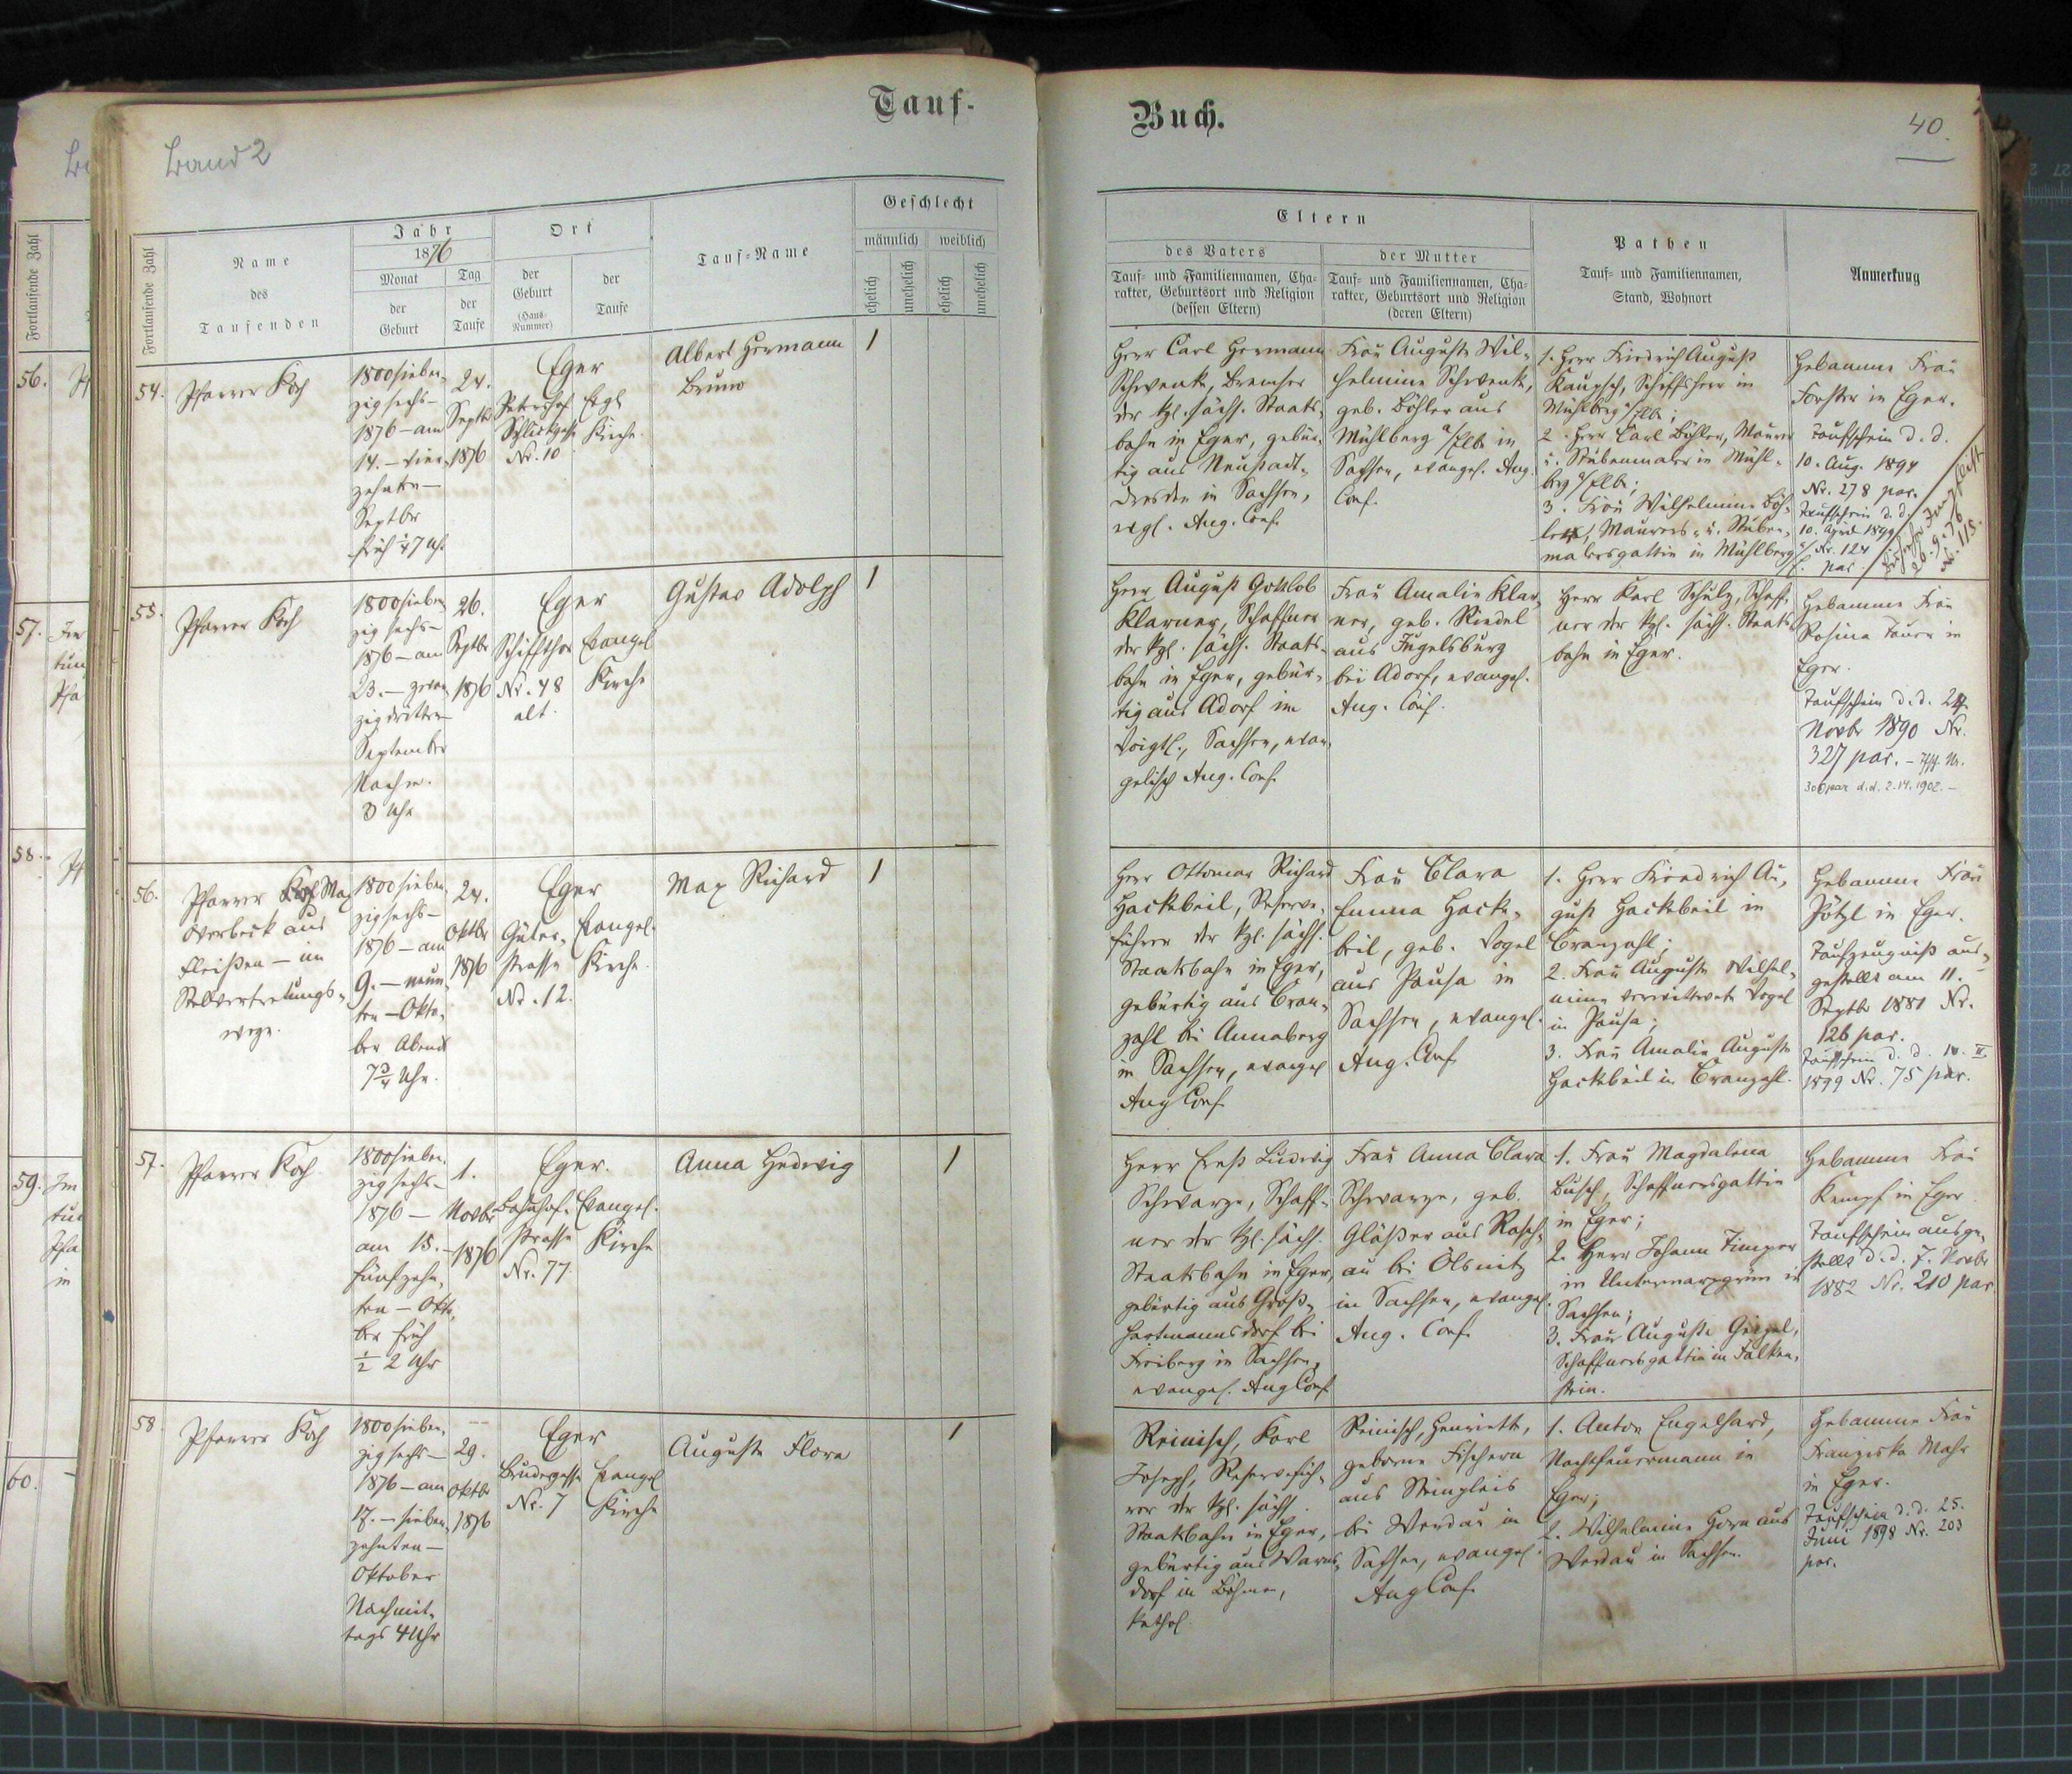 Tauf-
Buch.
40.
Band 2
Fortlaufende Zahl
Name
des
Taufenden
Jahr
1876
Monat
der
Geburt
Tag
der
Taufe
Ort
der
Geburt
(Haus-
Nummer)
der
Taufe
Tauf-Name
Geschlecht
männlich
weiblich
ehelich
unehelich
ehelich
unehelich
Eltern
des Vaters
Tauf- und Familiennamen, Cha-
rakter, Geburtsort und Religion
(dessen Eltern)
der Mutter
Tauf- und Familiennamen, Cha-
rakter, Geburtsort und Religion
(deren Eltern)
Pathen
Tauf- und Familiennamen,
Stand, Wohnort
Anmerkung
54.
Pfarrer Koch
1800 sieben-
zig sechs-
1876 - am
14. - vier-
zehnten -
Septbr
früh 1/4 7 Uhr
24.
Septbr
1876
Eger
Petershof
Schlickgasse
Nr. 10
Evgl.
Kirche.
Albert Hermann
Bruno
1
Herr Carl Hermann
Schwenke, Bremser
der kgl. sächs. Staats-
bahn in Eger, gebür-
tig aus Neustadt-
Dresden in Sachsen,
evgl. Aug. Conf.
Frau Auguste Wil-
helmine Schwenke,
geb. Böhler aus
Mühlberg a/Elbe in
Sachsen, evangel. Aug.
Conf.
1. Herr Friedrich August
Kaupsch, Schiffsherr in
Mühlberg a/Elbe;
2. Herr Carl Böhler, Maurer
u. Stubenmaler in Mühl-
berg a/Elbe;
3. Frau Wilhelmine Böh-
ler, Maurers- u. Stuben-
malersgattin in Mühlberg
Hebamme Frau
Forster in Eger.
Taufschein d. d.
10. Aug. 1894
Nr. 278 par.
Taufschein d. d.
10. April 1899
Nr. 124
par
26.9.76
55.
Pfarrer Koch
1800 sieben
zig sechs-
1876 - am
23. - zwan
zig dritten
September
Nachm.
3 Uhr
26.
Septbr
1876
Eger
Schiffthor
Nr. 48
alt.
Evangel
Kirche
Gustav Adolph
1
Herr August Gottlob
Klarner, Schaffner
der kgl. sächs. Staats-
bahn in Eger, gebür-
tig aus Adorf im
Voigtl., Sachsen, evan-
gelisch Aug. Conf.
Frau Amalie Klar-
ner, geb. Riedel
aus Jugelsburg
bei Adorf, evangel.
Aug. Conf.
Herr Karl Schulz, Schaff-
ner der kgl. sächs. Staats
bahn in Eger.
Hebamme Frau
Rosina Dauer in
Eger.
Taufschein d. d. 24.
Novbr 1890 Nr.
327 par. -
306 par d. d. 2. 1902. -
56.
Pfarrer Max
Overbeck aus
Fleißen - im
Stellvertretungs-
wege.
1800 sieben
zig sechs-
1876 - am
9. - neun-
ten - Okto-
ber Abends
7 3/4 Uhr.
24.
Oktbr
1876
Eger
Güter-
strasse
Nr. 12.
Evangel.
Kirche.
Max Richard
1
Herr Ottomar Richard
Hackebeil, Reserve-
führer der kgl. sächs.
Staatsbahn in Eger,
gebürtig aus Cran-
zahl bei Annaberg
in Sachsen, evangel
Aug Conf.
Frau Clara
Emma Hacke-
beil, geb. Vogel
aus Pausa in
Sachsen, evangel.
Aug. Conf.
1. Herr Friedrich Au-
gust Hackebeil in
Cranzahl;
2. Frau Auguste Wilhel-
mine verwittwete Vogel
in Pausa;
3. Frau Amalie Auguste
Hackebeil in Cranzahl.
Hebamme Frau
Pötzl in Eger.
Taufzeugniß aus-
gestellt am 11.
Septbr 1881 Nr.
126 par.
Taufschein d. d. 10. II.
1899 Nr. 75 par.
57.
Pfarrer Koch
1800 sieben-
zig sechs-
1876 -
am 15. -
fünfzehn-
ten - Okto-
ber früh
1/2 2 Uhr
1.
Novbr
1876
Eger.
Bahnhof-
strasse
Nr. 77
Evangel.
Kirche
Anna Hedwig
1
Herr Ernst Ludwig
Schwarze, Schaff-
ner der kgl. sächs.
Staatsbahn in Eger,
gebürtig aus Groß-
hartmannsdorf bei
Freiberg in Sachsen,
evangel. Aug Conf.
Frau Anna Clara
Schwarze, geb.
Gläßer aus Rasch-
au bei Ölsnitz
in Sachsen, evangel.
Aug. Conf.
1. Frau Magdalena
Busch, Schaffnersgattin
in Eger;
2. Herr Johann Timper
in Untermarxgrün in
Sachsen;
3. Frau Auguste Giegel,
Schaffnersgattin in Falken-
stein.
Hebamme Frau
Kempf in Eger
Taufschein ausge-
stellt d. d. 7. Novbr
1882 Nr. 210 par.
58
Pfarrer Koch
1800 sieben-
zig sechs-
1876 - am
17. - sieben-
zehnten -
Oktober
Nachmit-
tags 4 Uhr
29.
Oktbr
1876
Eger
Brudergasse
Nr. 7
Evangel
Kirche
Auguste Flora
1
Reinisch, Karl
Joseph, Reservefüh-
rer der kgl. sächs.
Staatsbahn in Eger,
gebürtig aus Warns-
dorf in Böhmen,
kathol.
Reinisch, Henriette,
geborne Fischern
aus Steinpleis
bei Werdau in
Sachsen, evangel.
Aug Conf.
1. Anton Engelhard,
Nachtfeuermann in
Eger;
2. Wilhelmine Horn aus
Werdau in Sachsen
Hebamme Frau
Franziska Mohr
in Eger.
Taufschein d. d. 25.
Juni 1898 Nr. 203
par.
56.
57.
58.
59.
60.